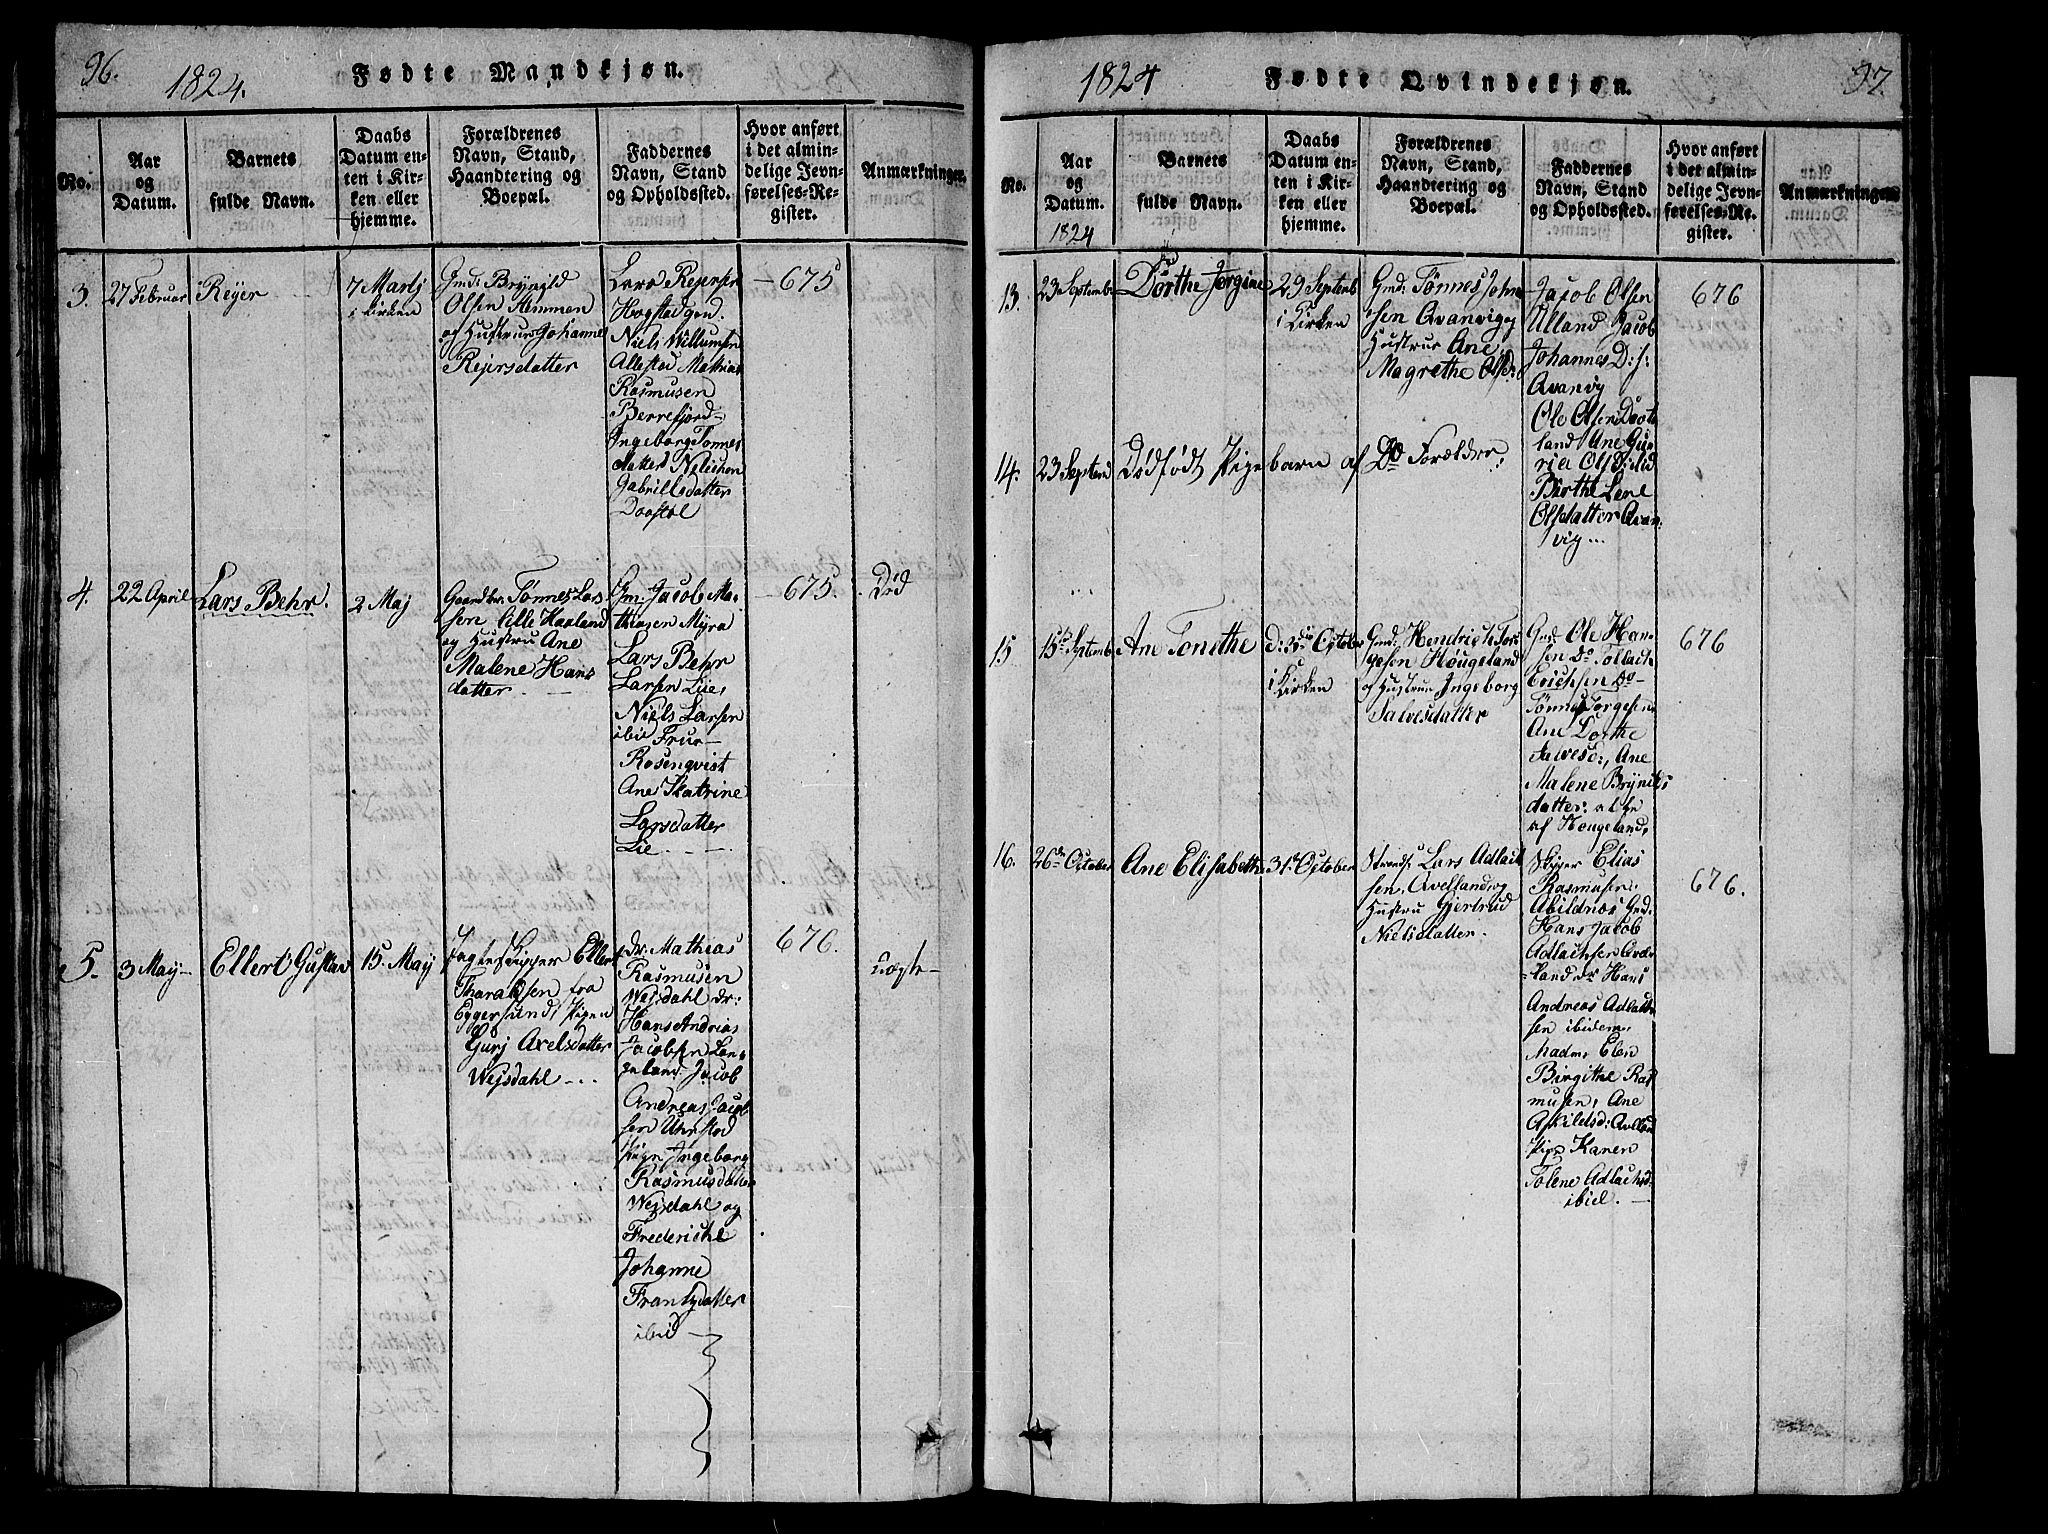 96.
1824.
Fødte Mandkjøn.
No.
Aar
og
Datum.
Barnets
fulde Navn.
Daabs
Datum en-
ten i Kir-
ken eller
hjemme.
Forældrenes
Navn, Stand,
Haandtering og
Boepæl.
Faddernes
Navn, Stand
og Opholdssted.
Hvor anført
i det almin-
delige Jevn-
førelses-Re-
gister.
Anmærkninger.
3.
27 Februar
Reÿer
7 Martj
i Kirken
Gmd: Brÿnild
Olsen Hemmen
og Hustrue Johanne
Reÿersdatter
Lars Rejersen
Niels Willumsen
Allestad Mathias
Rasmusen
Berrefjord
Ingeborg Tønnes
datter
Gabrillsdatter
675
4.
22 April
Lars Behr.
2 Maj
Tønnes Lar-
sen Lille Haaland
og Hustru Ane
Malene Hans
datter
Gm. Jacob Ma-
thiasen Myra
Lars Behr
Larsen Lie,
Niels Larsen
ibid Frue
Rosenqvist
Ane Katrine
Larsdatter
Lie.
675.
Død
5.
3 May
Ellert Gustav
15 May
Ellert
Tharaldsen fra
Eggersund, Pigen
Gurj Axelsdatter
Wejsdahl
dr: Mathias
Rasmusen
Wejsdahl dr:
Hans Andreas
Jacobsen Lan-
geland. Jacob
Andreas Jacob
sen Uhrstad
Pigen Ingeborg
Rasmusdatter
Wejsdahl og
Frederiche
Johanne
Frantzdatter
ibid
676.
uægte
1824
Fødte Qvindekjøn.
97.
No.
Aar
og
Datum.
1824
Barnets
fulde Navn.
Daabs
Datum en-
ten i Kir-
ken eller
hjemme.
Forældrenes
Navn, Stand,
Haandtering og
Boepæl.
Faddernes
Navn, Stand
og Opholdssted.
Hvor anført
i det almin-
delige Jevn-
førelses-Re-
gister.
Anmærkninger.
13.
23 Septembr
Dorthe Jorgine
29 Septemb
i Kirken
Gmd: Tønnes John
sen Avanvig og
Hustrue Ane
Magrethe Olsd:
Jacob Olsen
Ulland Jacob
Johannes D: s:
Avanvig
Ole Olsen
land Ane Gu-
ria Olsd: ibid
Birthe Lene
Olsdatter Avan-
vig
676
14.
23 Septemb
Dødfødt Pigebarn af Do Forældre:
15
15de Septemb
Ane Tonethe
D: 3die October
i Kirken
Gmd: Hendrich Tor
gesen Hougeland
og Hustrue Ingeborg
Salvesdatter
Gmd: Ole Han-
sen Do Tollach
Erichsen Do
Tønnes Torgesen
Ane Dorthe
Salvesd:, Ane
Malene Brÿnilds
datter: alle
af Hougeland.
676
16.
26de October
Ane Elisabeth
31te October
Lars Adlach
sen, Avelland og
Hustru Gjertrud
Nielsdatter.
Skiper Elias
Rasmusen
Abildnæs Gmd:
Hans Jacob
Adlachsen Avel-
land dr Hans
Andreas Adlach-
sen ibidem,
Madme Elen
Birgithe Ras
musen, Ane
Askildsd: Avelland
Pige Karen
Tolene Adlachsd:
ibid.
676.